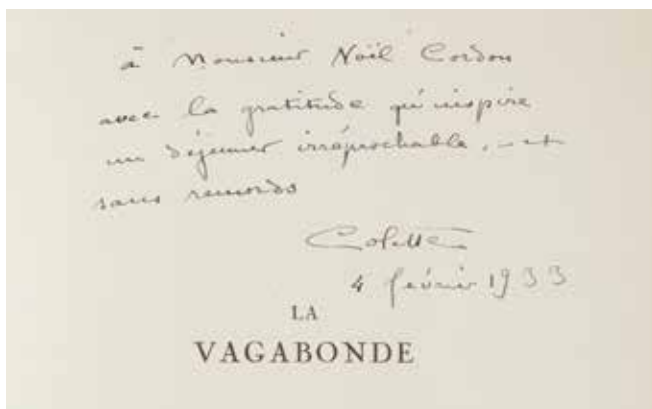 à Monsieur Noël Cordon
avec la gratitude qu'inspire
un déjeuner irréprochable, – et
sans remords
Colette
4 février 1933
LA
VAGABONDE